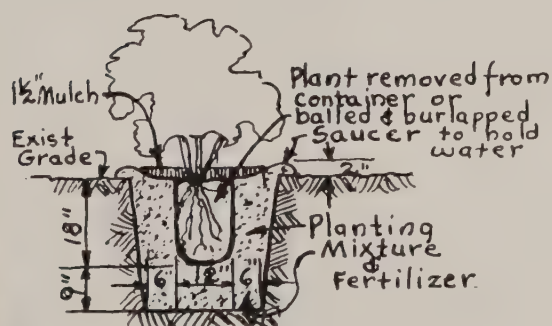 1½" Mulch
Plant removed from
container or
balled & burlapped
Saucer to hold
water
Exist
Grade
2"
18"
9"
6" 12" 6"
Planting
Mixture
&
Fertilizer.